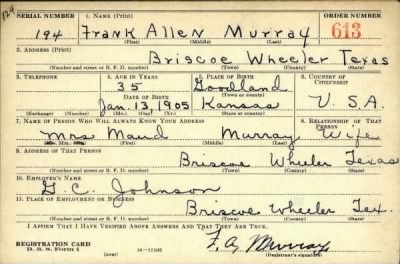 129
SERIAL NUMBER 1. NAME (Print) ORDER NUMBER
194 Frank Allen Murray 613
(First) (Middle) (Last)
2. ADDRESS (Print)
Briscoe Wheeler Texas
(Number and street or R. F. D. number) (Town) (County) (State)
3. TELEPHONE 4. AGE IN YEARS 5. PLACE OF BIRTH 6. COUNTRY OF CITIZENSHIP
35 Goodland
(Town or county)
DATE OF BIRTH
Jan. 13, 1905 Kansas U.S.A.
(Exchange) (No.) (Mo.) (Day) (Yr.) (State or country)
7. NAME OF PERSON WHO WILL ALWAYS KNOW YOUR ADDRESS 8. RELATIONSHIP OF THAT PERSON
Mrs Maud Murray Wife
(Mr., Mrs., Miss) (First) (Middle) (Last)
9. ADDRESS OF THAT PERSON
Briscoe Wheeler Texas
(Number and street or R. F. D. number) (Town) (County) (State)
10. EMPLOYER'S NAME
G. C. Johnson
11. PLACE OF EMPLOYMENT OR BUSINESS
Briscoe Wheeler Tex.
(Number and street or R. F. D. number) (Town) (County) (State)
I AFFIRM THAT I HAVE VERIFIED ABOVE ANSWERS AND THAT THEY ARE TRUE.
REGISTRATION CARD
D. S. S. Form 1 (over) 16-17105 F. A. Murray
(Registrant's signature)